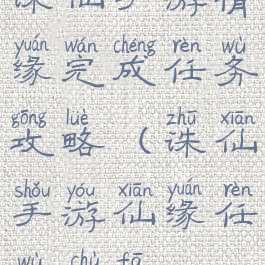 诛仙手游情
yuán wán chéng rèn wù
缘完成任务
gōng lüè zhū xiān
攻略（诛仙
shǒu yóu xiān yuán rèn
手游仙缘任
wù chù fā